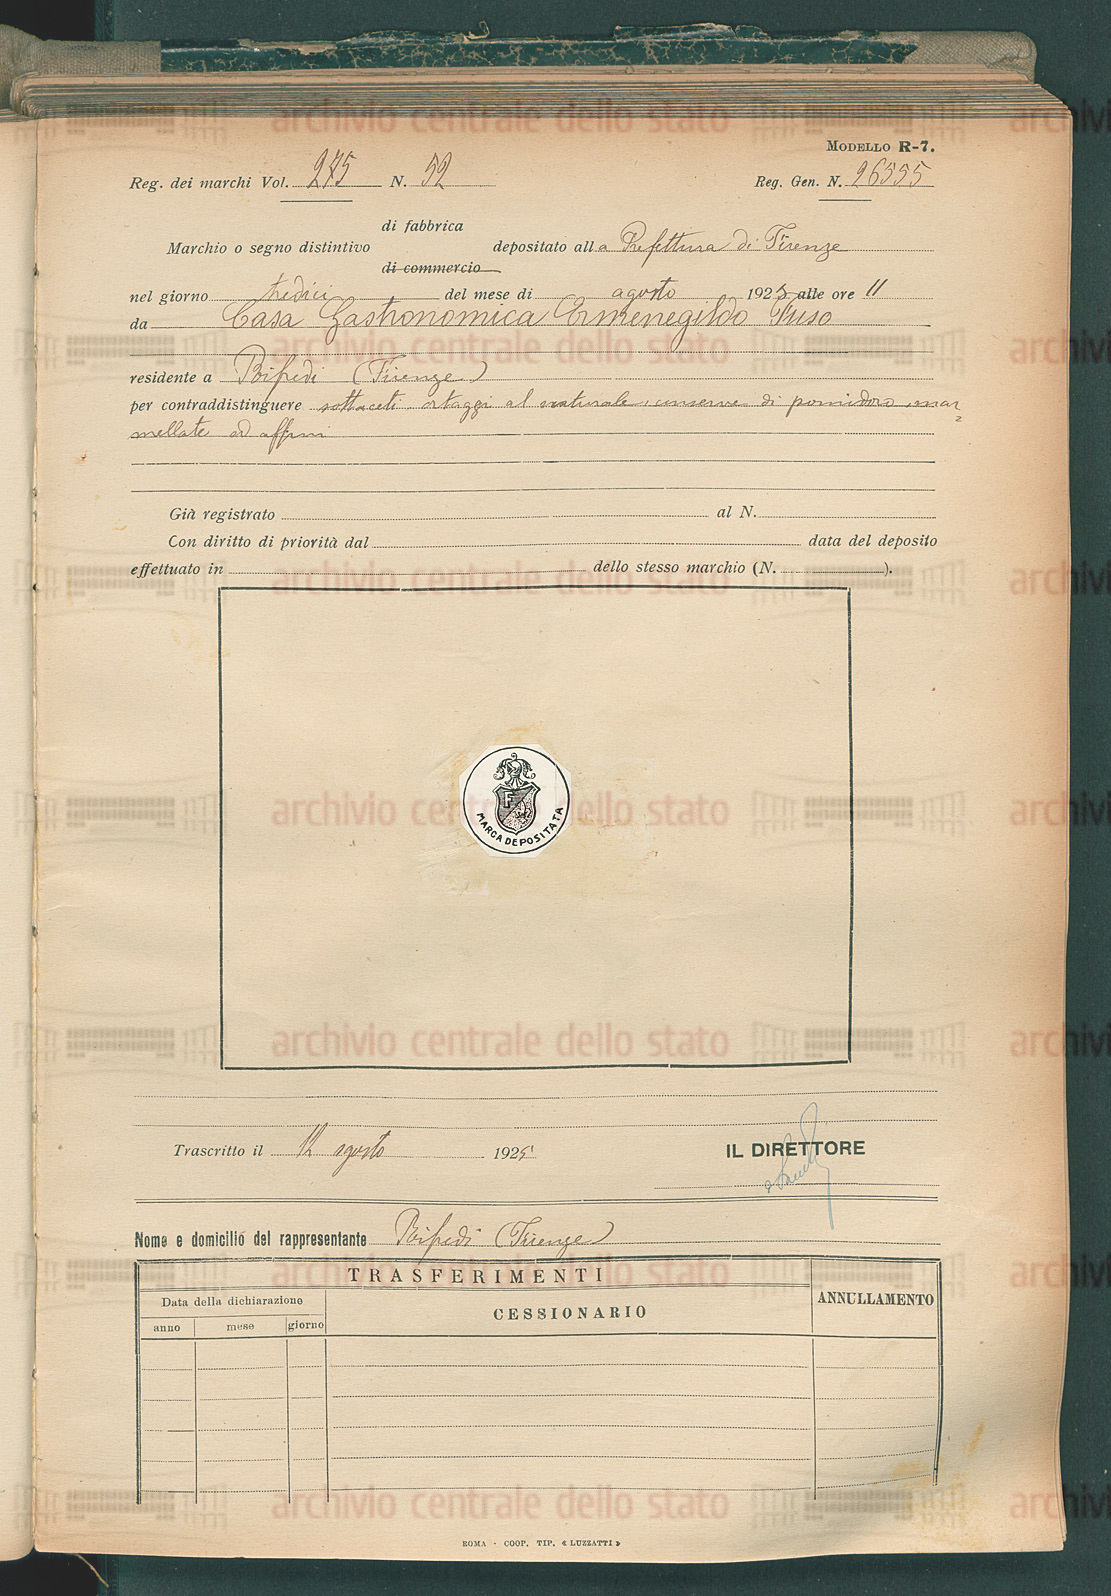 MODELLO R-7.
Reg. dei marchi Vol. 275 N. 52 Reg. Gen. N. 26555
di fabbrica
Marchio o segno distintivo depositato alla Prefettura di Firenze
di commercio
nel giorno tredici del mese di agosto 1923 alle ore 11
da Casa Gastronomica Ermenegildo Fuso
residente a Rifredi (Firenze)
per contraddistinguere sottaceti ortaggi al naturale, conserve di pomidoro, mar
mellate ed affini
Già registrato al N.
Con diritto di priorità dal data del deposito
effettuato in dello stesso marchio (N. ).
F
MARCA DEPOSITATA
Trascritto il 12 agosto 1925 IL DIRETTORE
Nome e domicilio del rappresentante Rifredi (Firenze)
TRASFERIMENTI
Data della dichiarazione CESSIONARIO ANNULLAMENTO
anno mese giorno
ROMA - COOP. TIP. « LUZZATTI »
archivio centrale dello stato